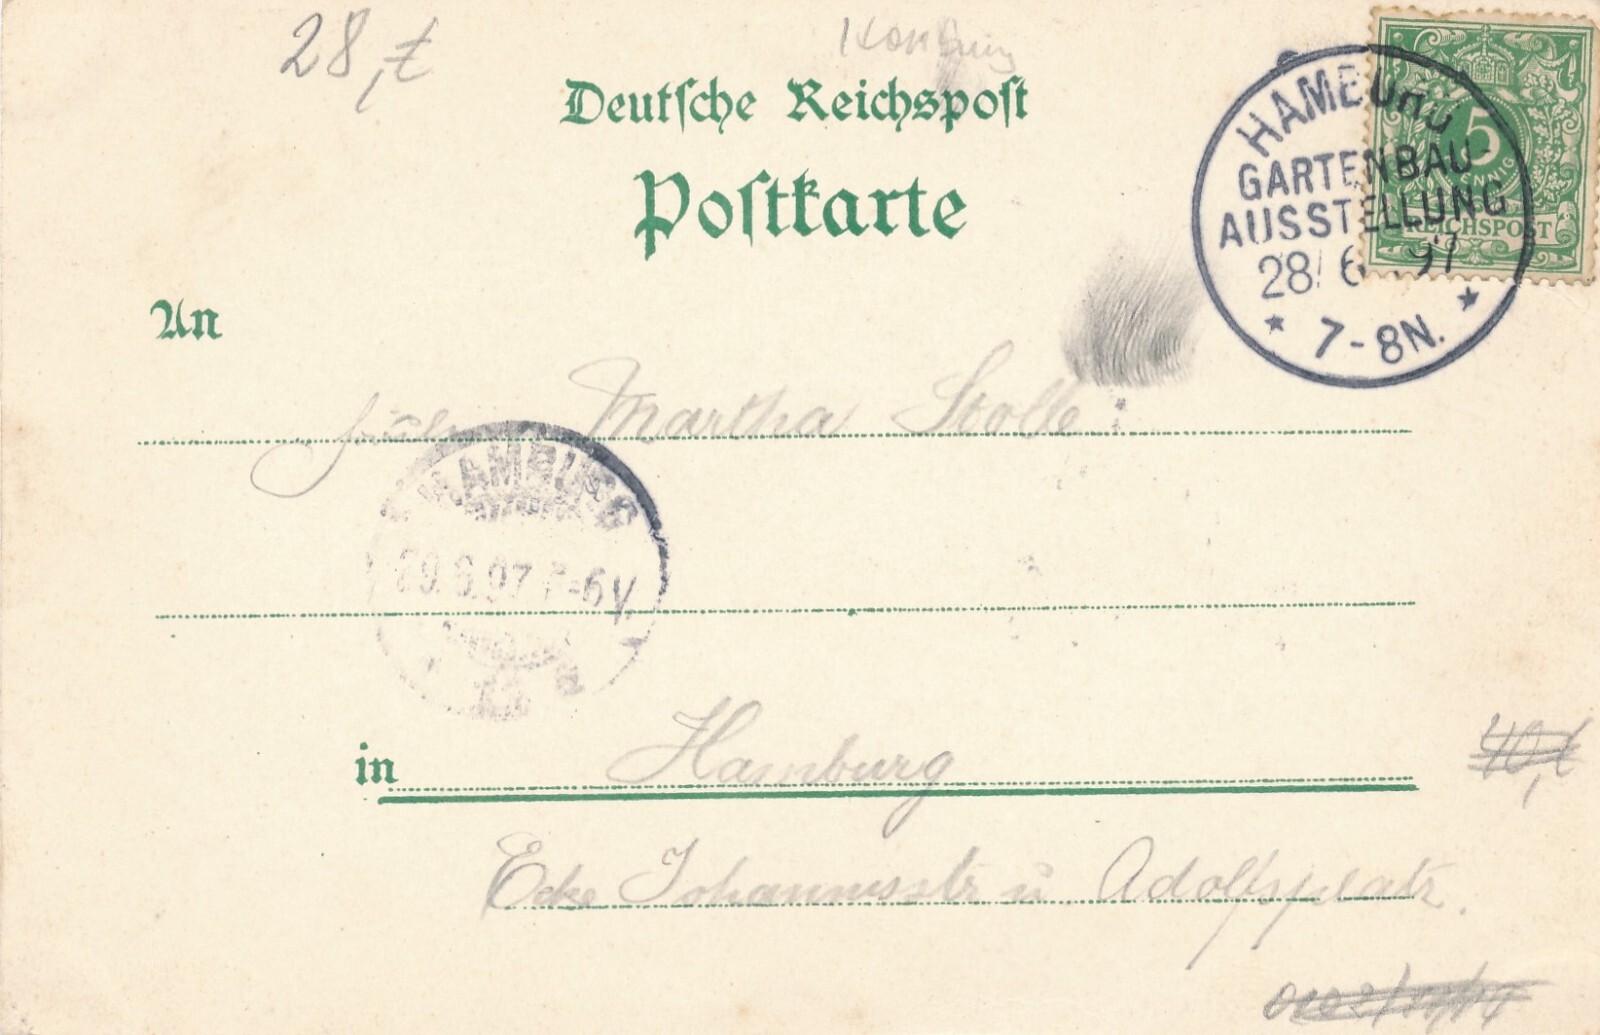 28,
Hamburg
Deutsche Reichspost
Postkarte
HAMBURG
GARTENBAU-
AUSSTELLUNG
28/6 97
* 7-8N. *
5
PFENNIG
REICHSPOST
An
Martha Stolle
HAMBURG
29.6.97 -6V.
in Hamburg
Ecke Johannisstr u. Adolfsplatz.
40,